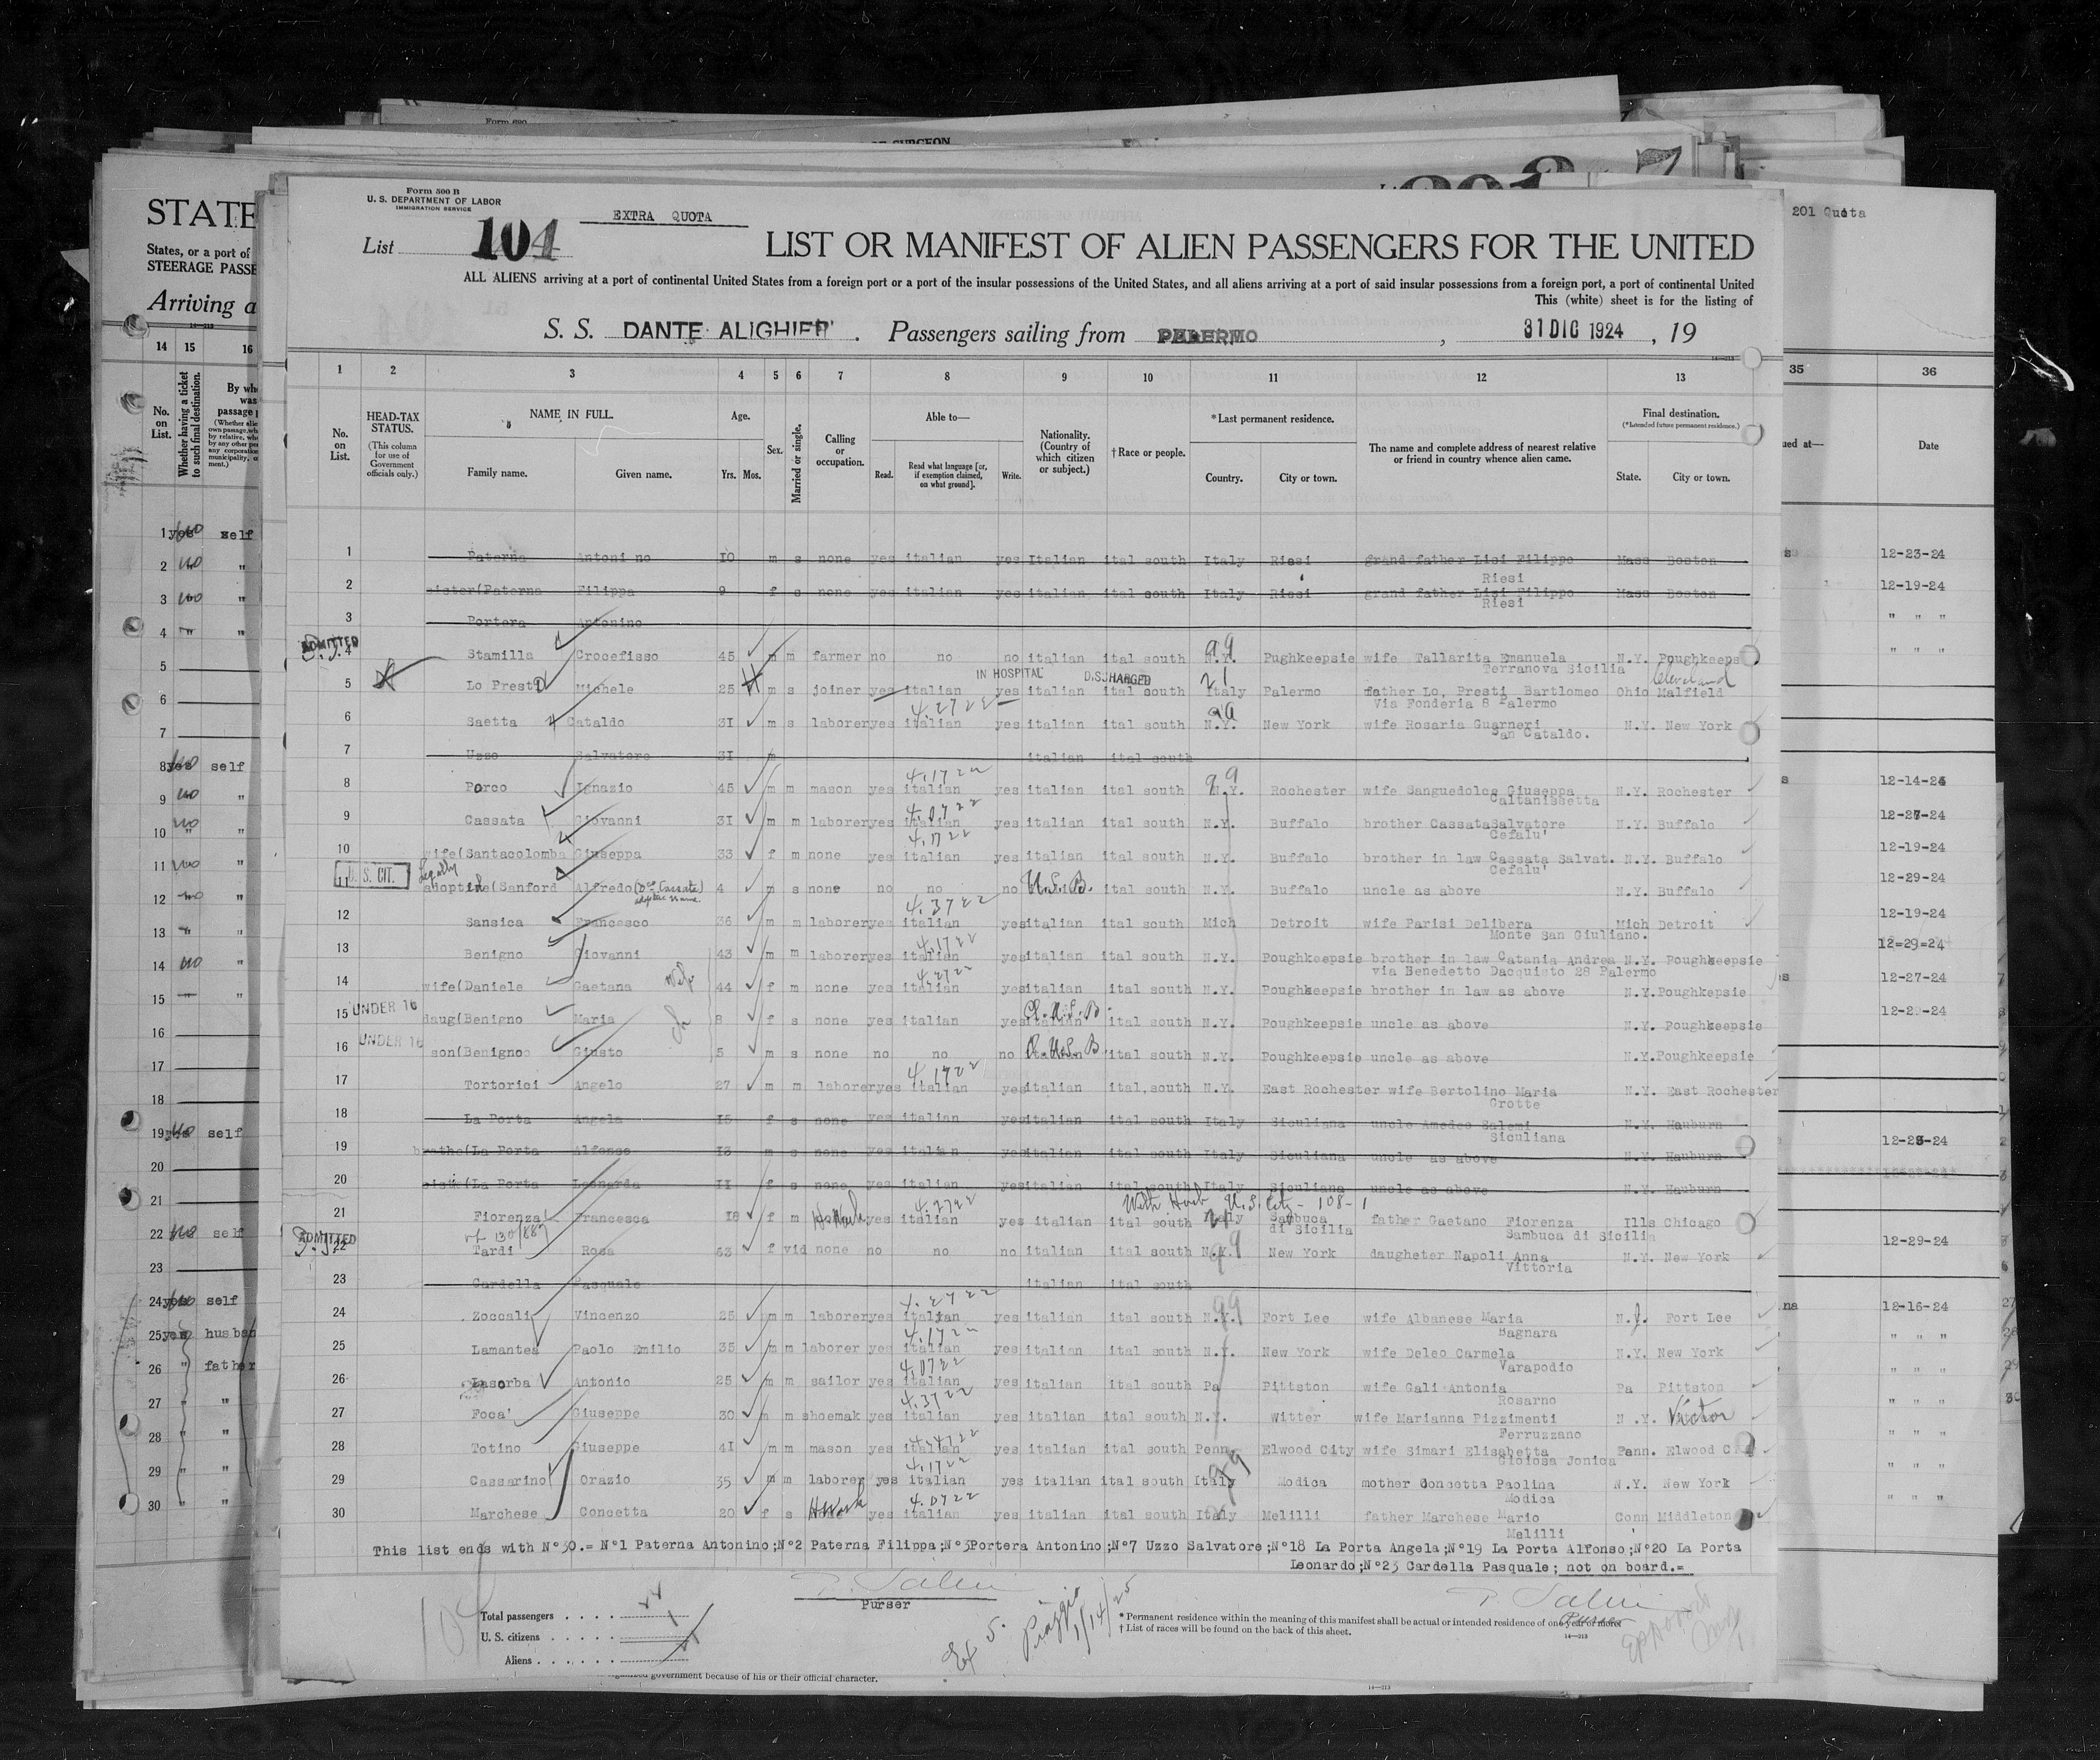 Form 500 B
U. S. DEPARTMENT OF LABOR
IMMIGRATION SERVICE
EXTRA QUOTA
201 Quota
List 104
LIST OR MANIFEST OF ALIEN PASSENGERS FOR THE UNITED
ALL ALIENS arriving at a port of continental United States from a foreign port or a port of the insular possessions of the United States, and all aliens arriving at a port of said insular possessions from a foreign port, a port of continental United
This (white) sheet is for the listing of
S. S. DANTE ALIGHIERI. Passengers sailing from PALERMO, 31 DIC 1924, 19
STATE
States, or a port of
STEERAGE PASSE
Arriving a
1 2 3 4 5 6 7 8 9 10 11 12 13
No. on List.
HEAD-TAX STATUS.
(This column for use of Government officials only.)
NAME IN FULL.
Family name. Given name.
Age.
Yrs. Mos.
Sex.
Married or single.
Calling or occupation.
Able to—
Read. Read what language [or, if exemption claimed, on what ground]. Write.
Nationality. (Country of which citizen or subject.)
†Race or people.
*Last permanent residence.
Country. City or town.
The name and complete address of nearest relative or friend in country whence alien came.
Final destination.
(*Intended future permanent residence.)
State. City or town.
1 Paterna Antonino 10 m s none yes italian yes Italian ital south Italy Riesi grand father Lisi Filippo Mass Boston
Riesi
2 sister(Paterna Filippa 9 f s none yes italian yes italian ital south Italy Riesi grand father Lisi Filippo Mass Boston
Riesi
3 Portera Antonino
ADMITTED
4 Stamilla Crocefisso 45 m m farmer no no no italian ital south N.Y. Pughkeepsie wife Tallarita Emanuela N.Y. Poughkeeps
Terranova Sicilia
IN HOSPITAL DISCHARGED
Cleveland
5 Lo Presti Michele 25 m s joiner yes italian yes italian ital south Italy Palermo father Lo Presti Bartlomeo Ohio Malfield
Via Fonderia 8 Palermo
6 Saetta Cataldo 31 m s laborer yes italian yes italian ital south N.Y. New York wife Rosaria Guarneri N.Y. New York
San Cataldo.
7 Uzzo Salvatore 31 m italian ital south
8 Porco Ignazio 45 m m mason yes italian yes italian ital south N.Y. Rochester wife Sanguedolce Giuseppa N.Y. Rochester
Caltanissetta
9 Cassata Giovanni 31 m m laborer yes italian yes italian ital south N.Y. Buffalo brother Cassata Salvatore N.Y. Buffalo
Cefalu'
10 wife(Santacolomba Giuseppa 33 f m none yes italian yes italian ital south N.Y. Buffalo brother in law Cassata Salvat. N.Y. Buffalo
Cefalu'
U. S. CIT. Legally
11 adopted(Sanford Alfredo 4 m s none no no no U.S.B. ital south N.Y. Buffalo uncle as above N.Y. Buffalo
12 Sansica Francesco 36 m m laborer yes italian yes italian ital south Mich Detroit wife Parisi Delibera Mich Detroit
Monte San Giuliano.
13 Benigno Giovanni 43 m m laborer yes italian yes italian ital south N.Y. Poughkeepsie brother in law Catania Andrea N.Y. Poughkeepsie
via Benedetto Dacquisto 28 Palermo
14 wife(Daniele Gaetana 44 f m none yes italian yes italian ital south N.Y. Poughkeepsie brother in law as above N.Y. Poughkepsie
UNDER 16
15 daug(Benigno Maria 8 f s none yes italian yes italian ital south N.Y. Poughkeepsie uncle as above N.Y. Poughkeepsie
UNDER 16
16 son(Benigno Giusto 5 m s none no no no italian ital south N.Y. Poughkeepsie uncle as above N.Y. Poughkeepsie
17 Tortorici Angelo 27 m m laborer yes italian yes italian ital, south N.Y. East Rochester wife Bertolino Maria N.Y. East Rochester
Grotte
18 La Porta Angela 15 f s none yes italian yes italian ital south Italy Siculiana uncle Amedeo Salemi N.Y. Hauburn
Siculiana
19 brothe(La Porta Alfonso 13 m s none yes italian yes italian ital south Italy Siculiana uncle as above N.Y. Hauburn
20 siste(La Porta Leonarda 11 f s none yes italian yes italian ital south Italy Siculiana uncle as above N.Y. Hauburn
21 Fiorenza Francesca 18 f m yes italian yes italian ital south Italy Sambuca di Sicilia father Gaetano Fiorenza Ills Chicago
Sambuca di Sicilia
ADMITTED
22 Tardi Rosa 53 f vid none no no no italian ital south N.Y. New York daugheter Napoli Anna N.Y. New York
Vittoria
23 Cardella Pasquale italian ital south
24 Zoccali Vincenzo 25 m m laborer yes italian yes italian ital south N.Y. Fort Lee wife Albanese Maria N.J. Fort Lee
Bagnara
25 Lamantea Paolo Emilio 35 m m laborer yes italian yes italian ital south N.Y. New York wife Deleo Carmela N.Y. New York
Varapodio
26 Lasorba Antonio 25 m m sailor yes italian yes italian ital south Pa Pittston wife Gali Antonia Pa Pittston
Rosarno
27 Foca' Giuseppe 30 m m shoemak yes italian yes italian ital south N.Y. Witter wife Marianna Pizzimenti N.Y. Victor
Ferruzzano
28 Totino Giuseppe 41 m m mason yes italian yes italian ital south Penn. Elwood City wife Simari Elisabetta Penn. Elwood C
Gioiosa Jonica
29 Cassarino Orazio 35 m m laborer yes italian yes italian ital south Italy Modica mother Concetta Paolina N.Y. New York
Modica
30 Marchese Concetta 20 f s yes italian yes italian ital south Italy Melilli father Marchese Mario Conn Middleton
Melilli
This list ends with N°30.= N°1 Paterna Antonino;N°2 Paterna Filippa;N°3Portera Antonino;N°7 Uzzo Salvatore;N°18 La Porta Angela;N°19 La Porta Alfonso;N°20 La Porta
Leonardo;N°23 Cardella Pasquale; not on board.=
Purser
Total passengers
U. S. citizens
Aliens
* Permanent residence within the meaning of this manifest shall be actual or intended residence of one year or more.
† List of races will be found on the back of this sheet.
government because of his or their official character.
14 15 16
No. on List.
Whether having a ticket to such final destination.
35 36
Date
12-23-24
12-19-24
" " "
" " "
12-19-24
12-29-24
12-19-24
12=29=24
12-27-24
12-29-24
12-16-24